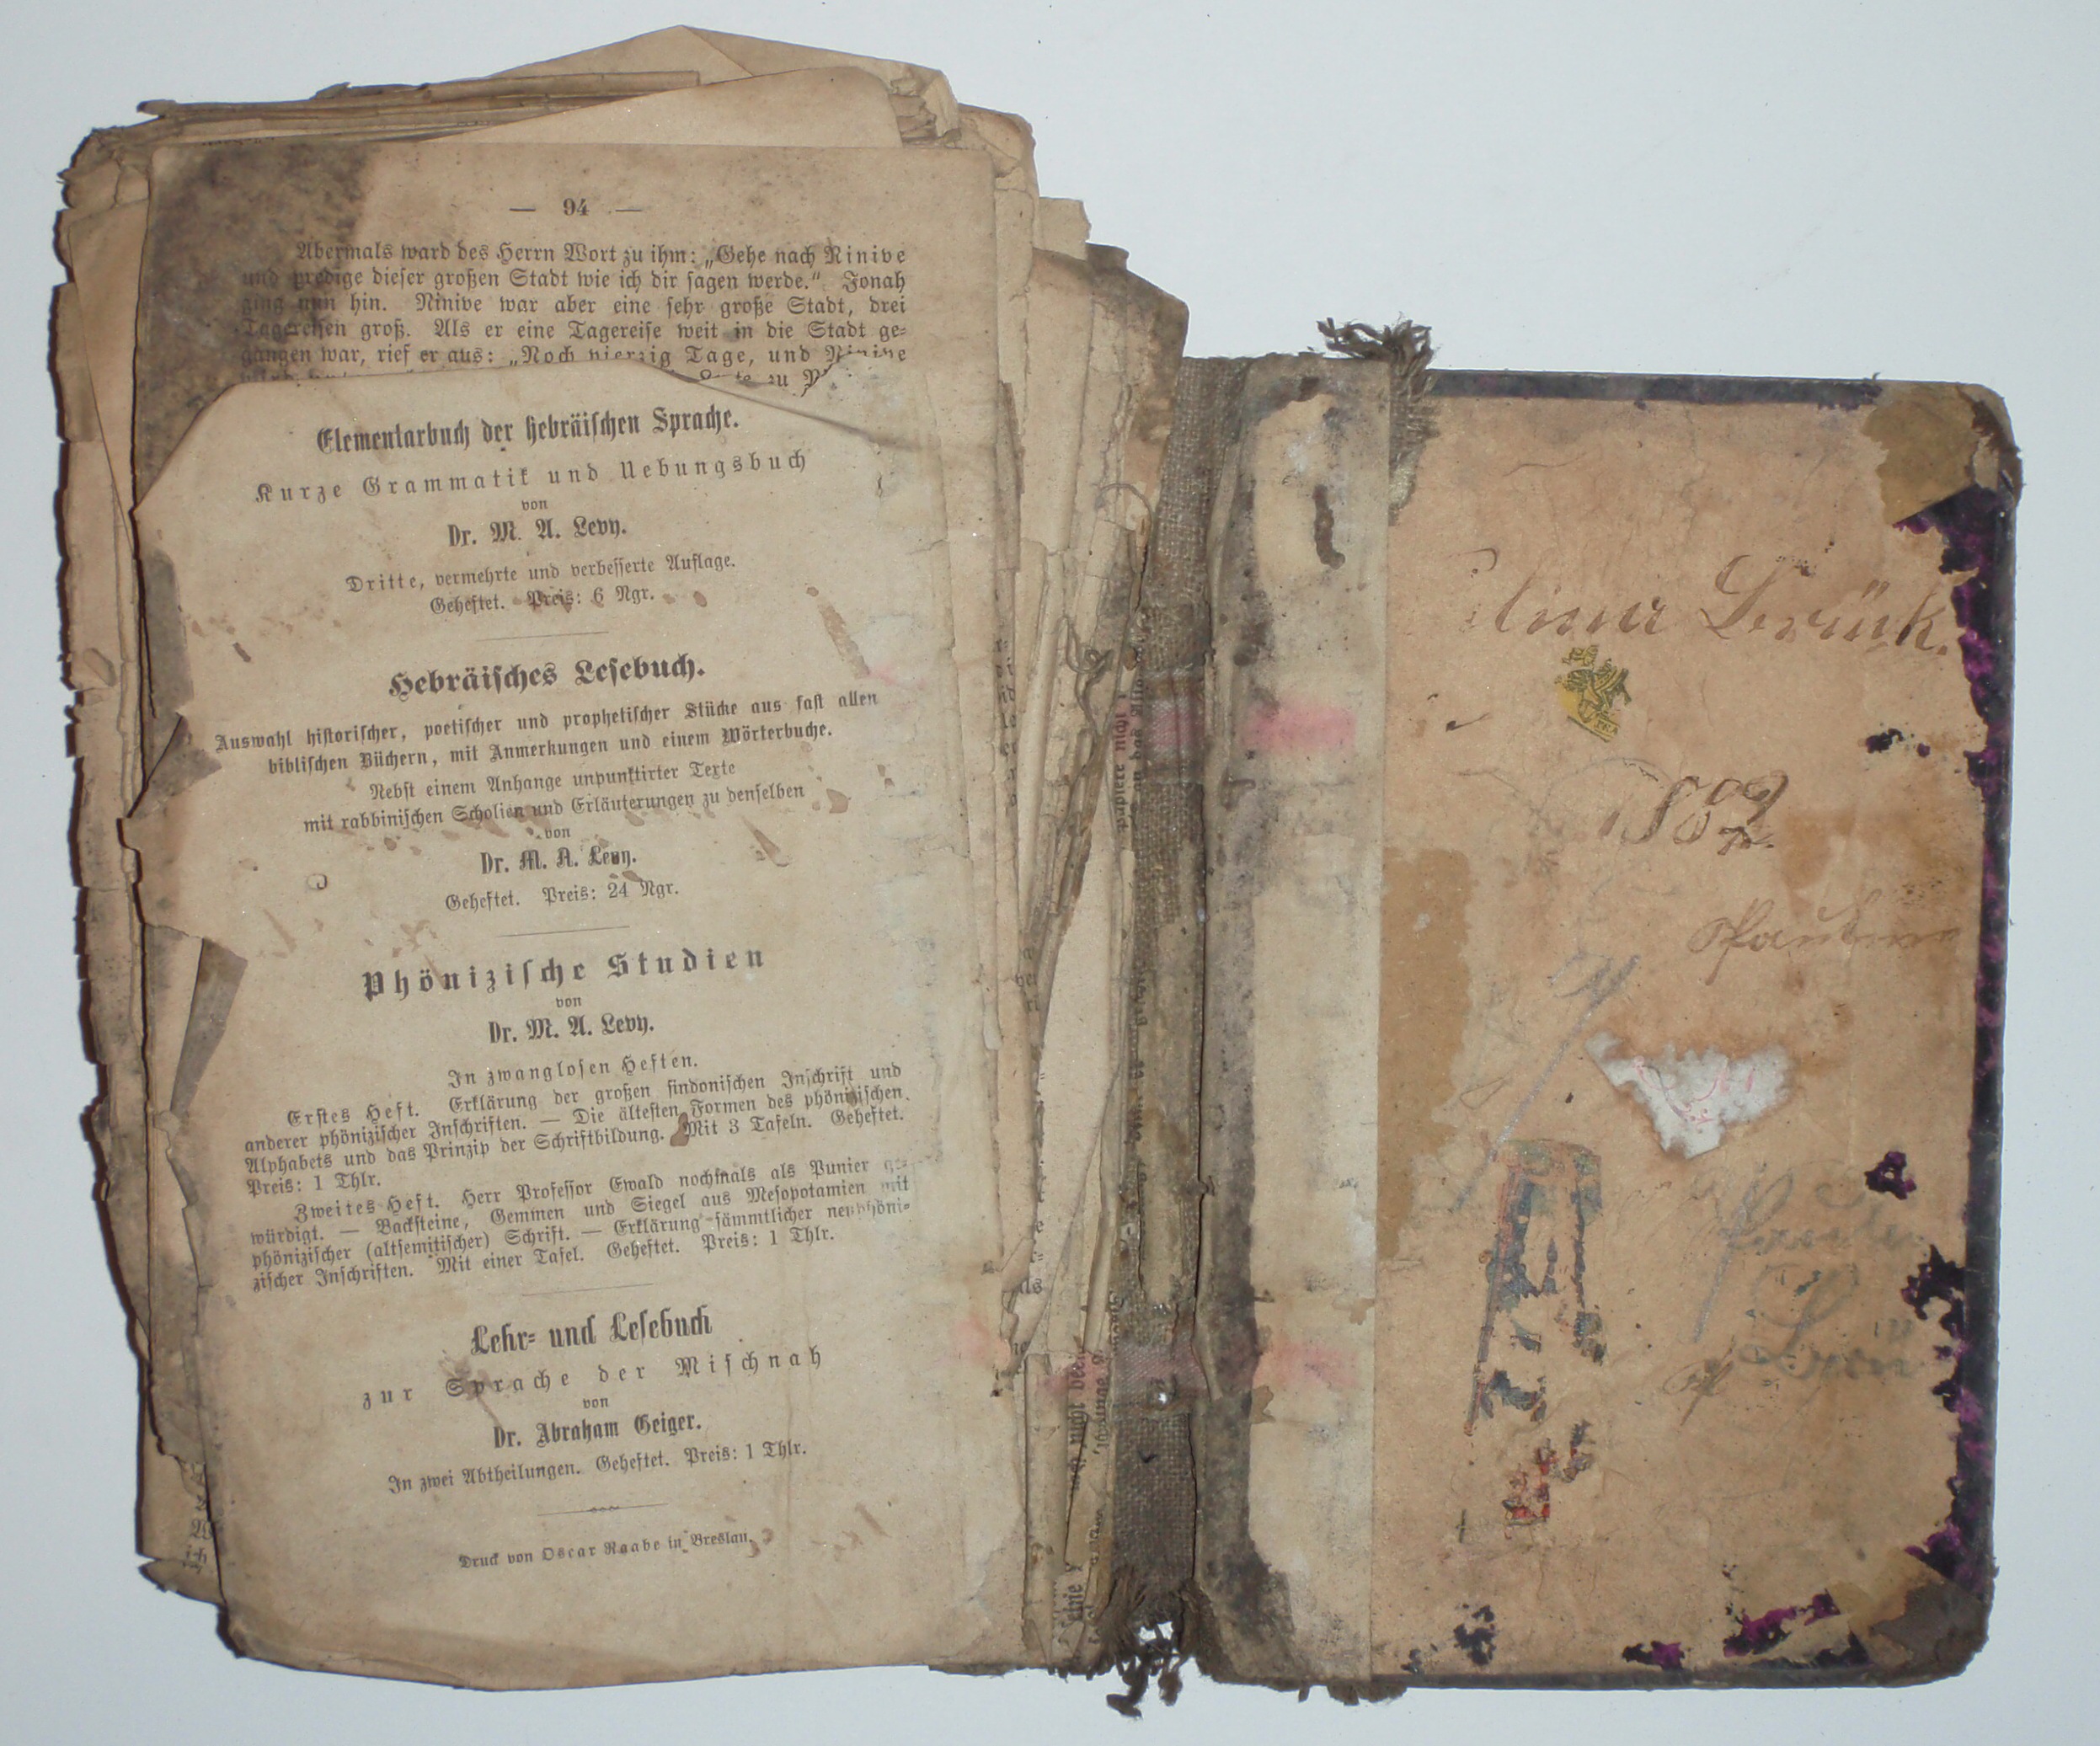 — 94 —
Abermals ward des Herrn Wort zu ihm: „Gehe nach Ninive
und predige dieser großen Stadt wie ich dir sagen werde.“ Jonah
ging nun hin. Ninive war aber eine sehr große Stadt, drei
Tagereisen groß. Als er eine Tagereise weit in die Stadt ge-
gangen war, rief er aus: „Noch vierzig Tage, und Ninive
Elementarbuch der hebräischen Sprache.
Kurze Grammatik und Uebungsbuch
von
Dr. M. A. Levy.
Dritte, vermehrte und verbesserte Auflage.
Geheftet. Preis: 6 Ngr.
Hebräisches Lesebuch.
Auswahl historischer, poetischer und prophetischer Stücke aus fast allen
biblischen Büchern, mit Anmerkungen und einem Wörterbuche.
Nebst einem Anhange unpunktirter Texte
mit rabbinischen Scholien und Erläuterungen zu denselben
von
Dr. M. A. Levy.
Geheftet. Preis: 24 Ngr.
Phönizische Studien
von
Dr. M. A. Levy.
In zwanglosen Heften.
Erstes Heft. Erklärung der großen sindonischen Inschrift und
anderer phönizischer Inschriften. — Die ältesten Formen des phönizischen
Alphabets und das Prinzip der Schriftbildung. Mit 3 Tafeln. Geheftet.
Preis: 1 Thlr.
Zweites Heft. Herr Professor Ewald nochmals als Punier ge-
würdigt. — Backsteine, Gemmen und Siegel aus Mesopotamien mit
phönizischer (altsemitischer) Schrift. — Erklärung sämmtlicher neuphöni-
zischer Inschriften. Mit einer Tafel. Geheftet. Preis: 1 Thlr.
Lehr- und Lesebuch
zur Sprache der Mischnah
von
Dr. Abraham Geiger.
In zwei Abtheilungen. Geheftet. Preis: 1 Thlr.
Druck von Oscar Raabe in Breslau.
1882